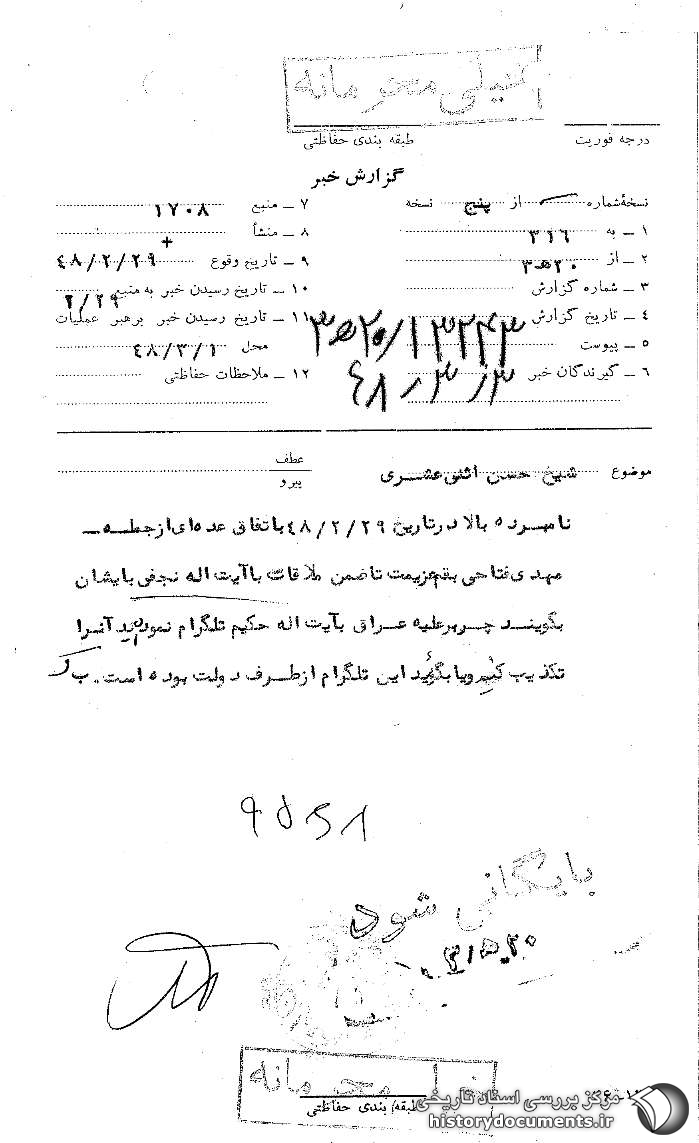 خیلی محرمانه
درجه فوریت
طبقه بندی حفاظتی
گزارش خبر
نسخهٔ شماره از پنج نسخه
۱ ـ به ۳۱۶
۲ ـ از ۲۰ ه ۳
۳ ـ شماره گزارش
۴ ـ تاریخ گزارش ۳ ه ۲۰/۱۳۲۴۳
۵ ـ پیوست
۶ ـ گیرندگان خبر ۴۸٫۳٫۳
۷ ـ منبع ۱۷۰۸
۸ ـ منشأ +
۹ ـ تاریخ وقوع ۴۸/۲/۲۹
۱۰ ـ تاریخ رسیدن خبر به منبع ۲/۲۹
۱۱ ـ تاریخ رسیدن خبر برهبر عملیات
محل ۴۸/۳/۱
۱۲ ـ ملاحظات حفاظتی
موضوع شیخ حسن اثنی عشری
عطف
پیرو
نامبرده بالا در تاریخ ۴۸/۲/۲۹ باتفاق عده‌ای از جمله ـ
مهدی فتاحی بقم عزیمت تا ضمن ملاقات با آیت اله نجفی بایشان
بگویند چرا بر علیه عراق بآیت اله حکیم تلگرام نموده‌اید آنرا
تکذیب کنید و یا بگوئید این تلگرام از طرف دولت بوده است.
بایگانی شود
خیلی محرمانه
طبقه بندی حفاظتی
مرکز بررسی اسناد تاریخی
historydocuments.ir